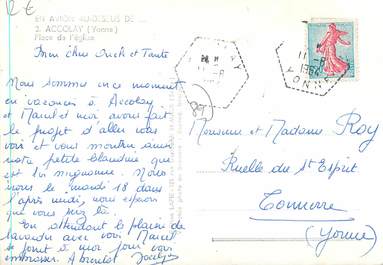 2 €
EN AVION AU-DESSUS DE ...
2. ACCOLAY (Yonne)
Place de l'église
Mon cher Oncle et Tante
Nous sommes en ce moment
en vacances à Accolay
et Marcel et moi avons fait
le projet d'aller vous
voir et vous montrer
notre petite blandine qui
est si mignonne. Nous
le mardi 18 dans
l'après midi, nous espérons
que vous serez là.
En attendant le plaisir de
bavarder avec vous Marcel
se joint à moi pour vous
embrasser. A bientôt Jocelyne
11 -8
1964
YONNE
89
Monsieur et Madame Roy
Ruelle du St Esprit
Tonnerre
(Yonne)